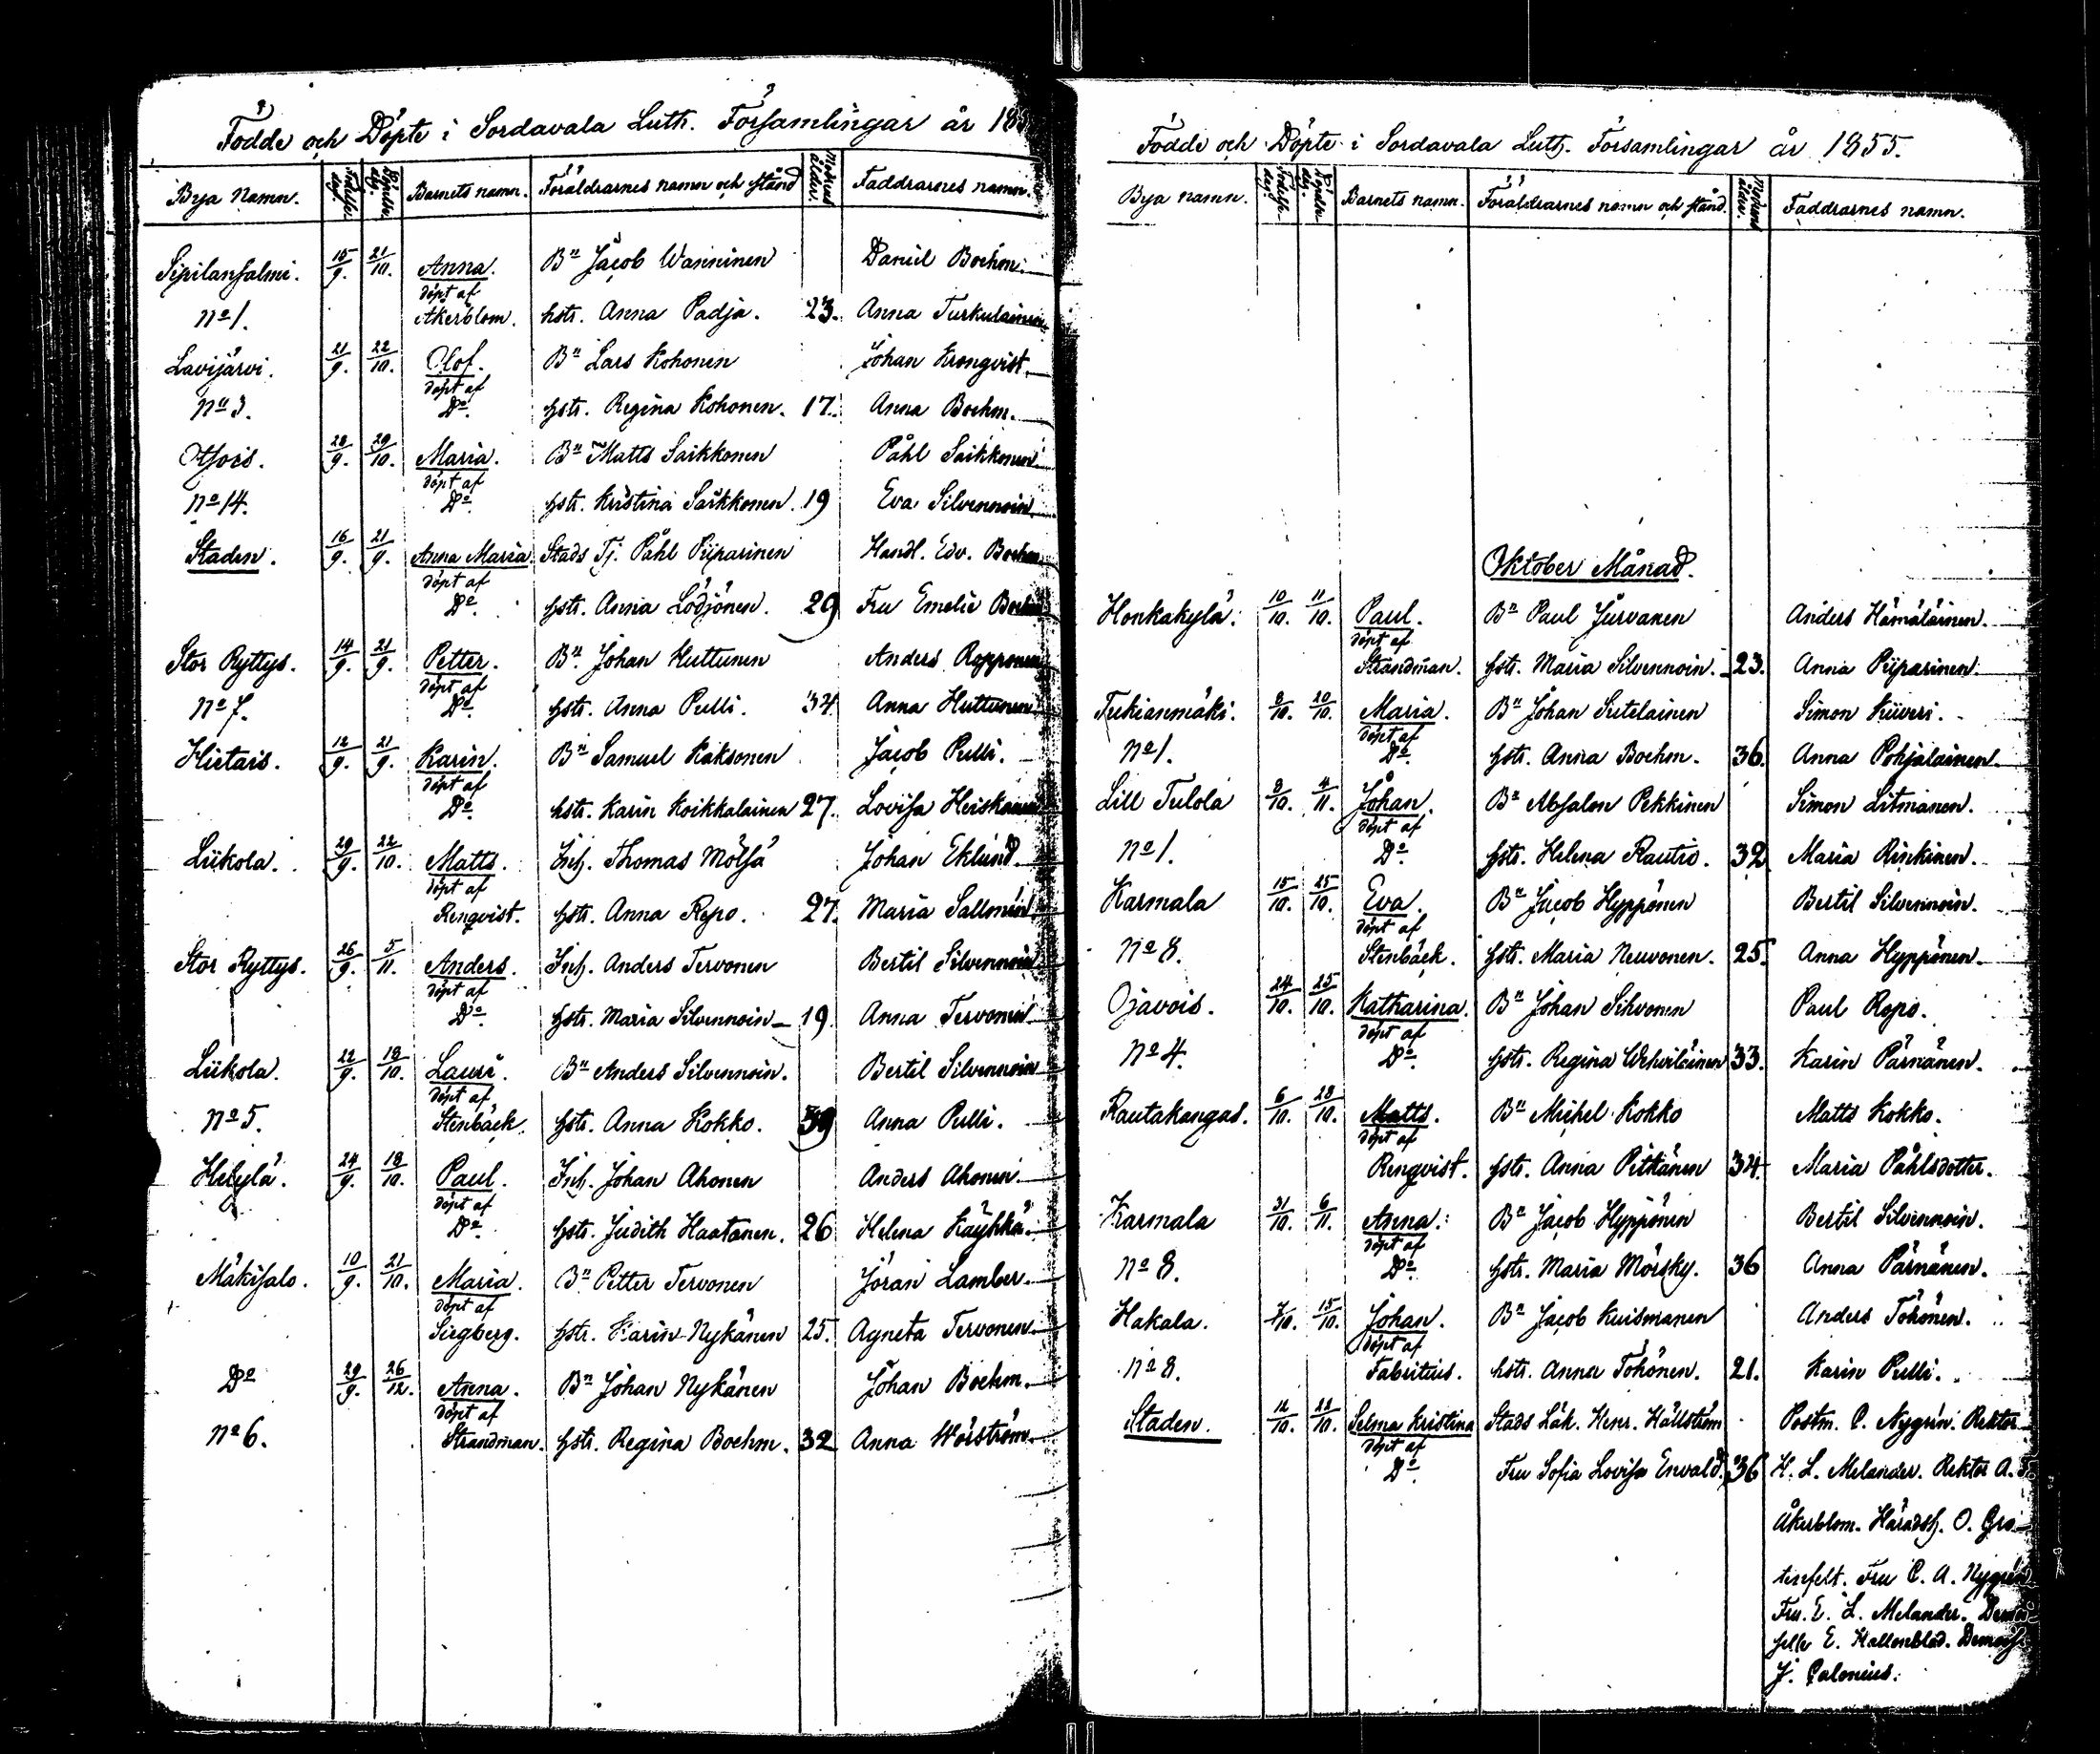 Födde och Döpte i Sordavala Luth. Församlingar år 185
Bya Namn. Födelse dag. Döpelse dag. Barnets namn. Föräldrarnes namn och stånd Modrens ålder. Faddrarnes namn.
Sipilansalmi. 15/9. 21/10. Anna. Bn Jacob Wänninen Daniel Boehm.
döpt af
No 1. Åkerblom. hstr. Anna Padja. 23. Anna Turkulainen
Lavijärvi. 21/9. 22/10. Olof. Bn Lars Kohonen Johan Kronqvist.
döpt af
No 3. Do. hstr. Regina Kohonen. 17. Anna Boehm.
Otsois. 28/9. 29/10. Maria. Bn Matts Saikkonen Påhl Saikkonen
döpt af
No 14. Do. hstr. Kristina Saikkonen. 19 Eva Silvennoin
Staden. 16/9. 21/9. Anna Maria Stads Tj. Påhl Piiparinen Handl. Edv. Boehm
döpt af
Do. hstr. Anna Lödjönen. 29 Fru Emelie Boehm
Stor Ryttys. 14/9. 21/9. Petter. Bn. Johan Huttunen Anders Ropponen
döpt af
No 7. Do. hstr. Anna Pulli. 34. Anna Huttunen
Hirtais. 12/9. 21/9. Karin. Bn Samuel Kaksonen Jacob Pulli.
döpt af
Do. hstr. Karin Koikkalainen 27. Lovisa Heiskanen
Liikola. 29/9. 22/10. Matts. Inh. Thomas Mölsä Johan Eklund.
döpt af
Renqvist. hstr. Anna Repo. 27. Maria Sallonen
Stor Ryttys. 26/9. 5/11. Anders. Inh. Anders Tervonen Bertil Silvennoin
döpt af
Do. hstr. Maria Silvennoin 19. Anna Tervonen
Liikola. 22/9. 18/10. Lauri. Bn Anders Silvennoin. Bertil Silvennoin
döpt af
No 5. Stenbäck. hstr. Anna Kokko. 39 Anna Pulli.
Helylä. 24/9. 18/10. Paul. Inh. Johan Ahonen Anders Ahonen.
döpt af
Do. hstr. Judith Haatanen. 26 Helena Käyhkö.
Mäkisalo. 10/9. 21/10. Maria. Bn Petter Tervonen Jöran Lamber.
döpt af
Siegberg. hstr. Karin Nykänen 25. Agneta Tervonen.
Do 29/9. 26/12. Anna. Bn Johan Nykänen Johan Boehm.
döpt af
No 6. Strandman. hstr. Regina Boehm. 32 Anna Wörström.
Födde och Döpte i Sordavala Luth. Församlingar år 1855.
Bya namn. Födelse dag. Döpelse dag. Barnets namn. Föräldrarnes namn och stånd. Modrens ålder. Faddrarnes namn.
Oktober Månad.
Honkakylä. 10/10. 11/10. Paul. Bn Paul Jurvanen Anders Hämäläinen.
döpt af
Strandman. hstr. Maria Silvennoin. 23. Anna Piiparinen.
Tukianmäki. 8/10. 20/10. Maria. Bn Johan Sutelainen Simon Kiiveri.
döpt af
No 1. Do. hstr. Anna Boehm. 36. Anna Pohjalainen
Lill Tulola 8/10. 4/11. Johan. Bn Absalon Pekkinen Simon Litmanen.
döpt af
No 1. Do. hstr. Helena Rautio. 32 Maria Rinkinen.
Karmala 15/10. 25/10. Eva. Bn Jacob Hyppönen Bertil Silvennoin.
döpt af
No 8. Stenbäck. hstr. Maria Neuvonen. 25. Anna Hyppönen.
Ojavois. 24/10. 25/10. Katharina. Bn Johan Sihvonen Paul Repo.
döpt af
No 4. Do. hstr. Regina Wehviläinen 33. Karin Pärnänen.
Rautakangas. 6/10. 28/10. Matts. Bn Michel Kokko Matts Kokko.
döpt af
Renqvist. hstr. Anna Pitkänen 34. Maria Påhlsdotter.
Karmala 31/10. 6/11. Anna. Bn Jacob Hyppönen Bertil Silvennoin.
döpt af
No 8. Do. hstr. Maria Mörsky. 36 Anna Pärnänen.
Hakala. 7/10. 15/10. Johan. Bn Jacob Kuismanen Anders Töhönen.
döpt af
No 8. Fabritius. hstr. Anna Töhönen. 21. Karin Pulli.
Staden. 12/10. 22/10. Selma Kristina Stads Läk. Henr. Hällström Postm. C. Nygrén. Rektor
döpt af
Do. Fru Sofia Lovisa Enwald. 36 H. L. Melander. Rektor A.
Åkerblom. Häradsh. O. Gro-
tenfelt. Fru C. A. Nygrén
Fru. E. L. Melander. Demoi-
selle E. Hallenblad. Demois.
J. Calonius.